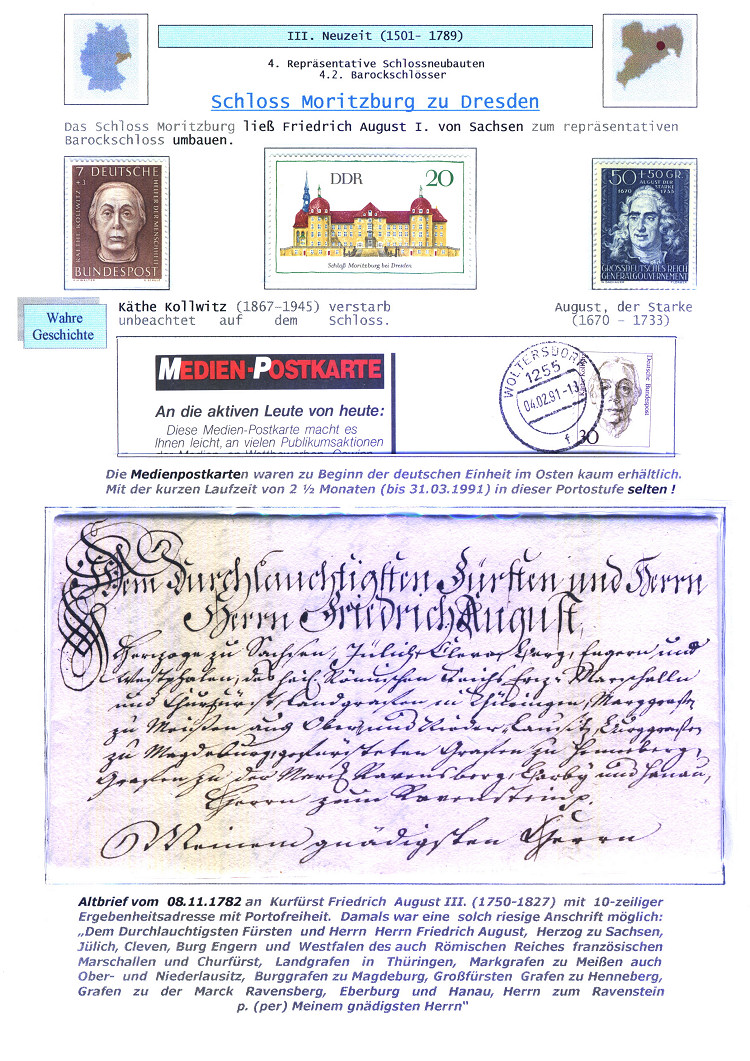 III. Neuzeit (1501- 1789)
4. Repräsentative Schlossneubauten
4.2. Barockschlösser
Schloss Moritzburg zu Dresden
Das Schloss Moritzburg ließ Friedrich August I. von Sachsen zum repräsentativen
Barockschloss umbauen.
7 DEUTSCHE
KAETHE KOLLWITZ + 3
HELFER DER MENSCHHEIT
BUNDESPOST
DDR 20
Schloß Moritzburg bei Dresden
50+50 GR.
AUGUST DER
STARKE
1670 1733
GROSSDEUTSCHES REICH
GENERALGOUVERNEMENT
Wahre
Geschichte
Käthe Kollwitz (1867-1945) verstarb
unbeachtet auf dem Schloss.
August, der Starke
(1670 - 1733)
MEDIEN-POSTKARTE
An die aktiven Leute von heute:
Diese Medien-Postkarte macht es
Ihnen leicht, an vielen Publikumsaktionen
WOLTERSDORF
1255
04.02.91-13
f
Deutsche Bundespost
30
Die Medienpostkarten waren zu Beginn der deutschen Einheit im Osten kaum erhältlich.
Mit der kurzen Laufzeit von 2 ½ Monaten (bis 31.03.1991) in dieser Portostufe selten !
Dem Durchlauchtigsten Fürsten und Herrn
Herrn Friedrich August,
Herzoge zu Sachsen, Jülich, Cleve, Berg, Engern und
Westphalen, des heil. Römischen Reichs Erz-Marschalln
und Churfürst, Landgrafen in Thüringen, Marggrafen
zu Meißen auch Ober- und Nieder-Lausitz, Burggrafen
zu Magdeburg, gefürsteten Grafen zu Henneberg,
Grafen zu der Marck, Ravensberg, Barby und Hanau,
Herrn zum Ravenstein p.
Meinem gnädigsten Herrn
Altbrief vom 08.11.1782 an Kurfürst Friedrich August III. (1750-1827) mit 10-zeiliger
Ergebenheitsadresse mit Portofreiheit. Damals war eine solch riesige Anschrift möglich:
„Dem Durchlauchtigsten Fürsten und Herrn Herrn Friedrich August, Herzog zu Sachsen,
Jülich, Cleven, Burg Engern und Westfalen des auch Römischen Reiches französischen
Marschallen und Churfürst, Landgrafen in Thüringen, Markgrafen zu Meißen auch
Ober- und Niederlausitz, Burggrafen zu Magdeburg, Großfürsten Grafen zu Henneberg,
Grafen zu der Marck Ravensberg, Eberburg und Hanau, Herrn zum Ravenstein
p. (per) Meinem gnädigsten Herrn“